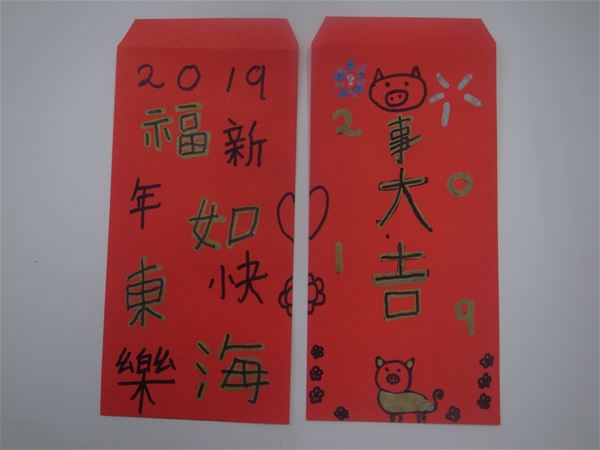 2019
福如東海
新年快樂
事大吉
2019